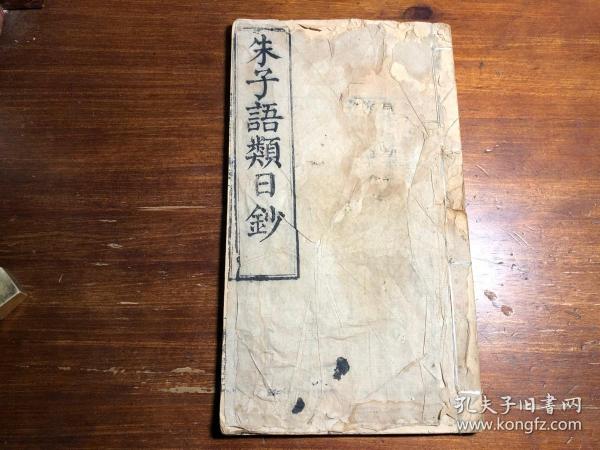 朱子語類日鈔
孔夫子旧書网
www.kongfz.com